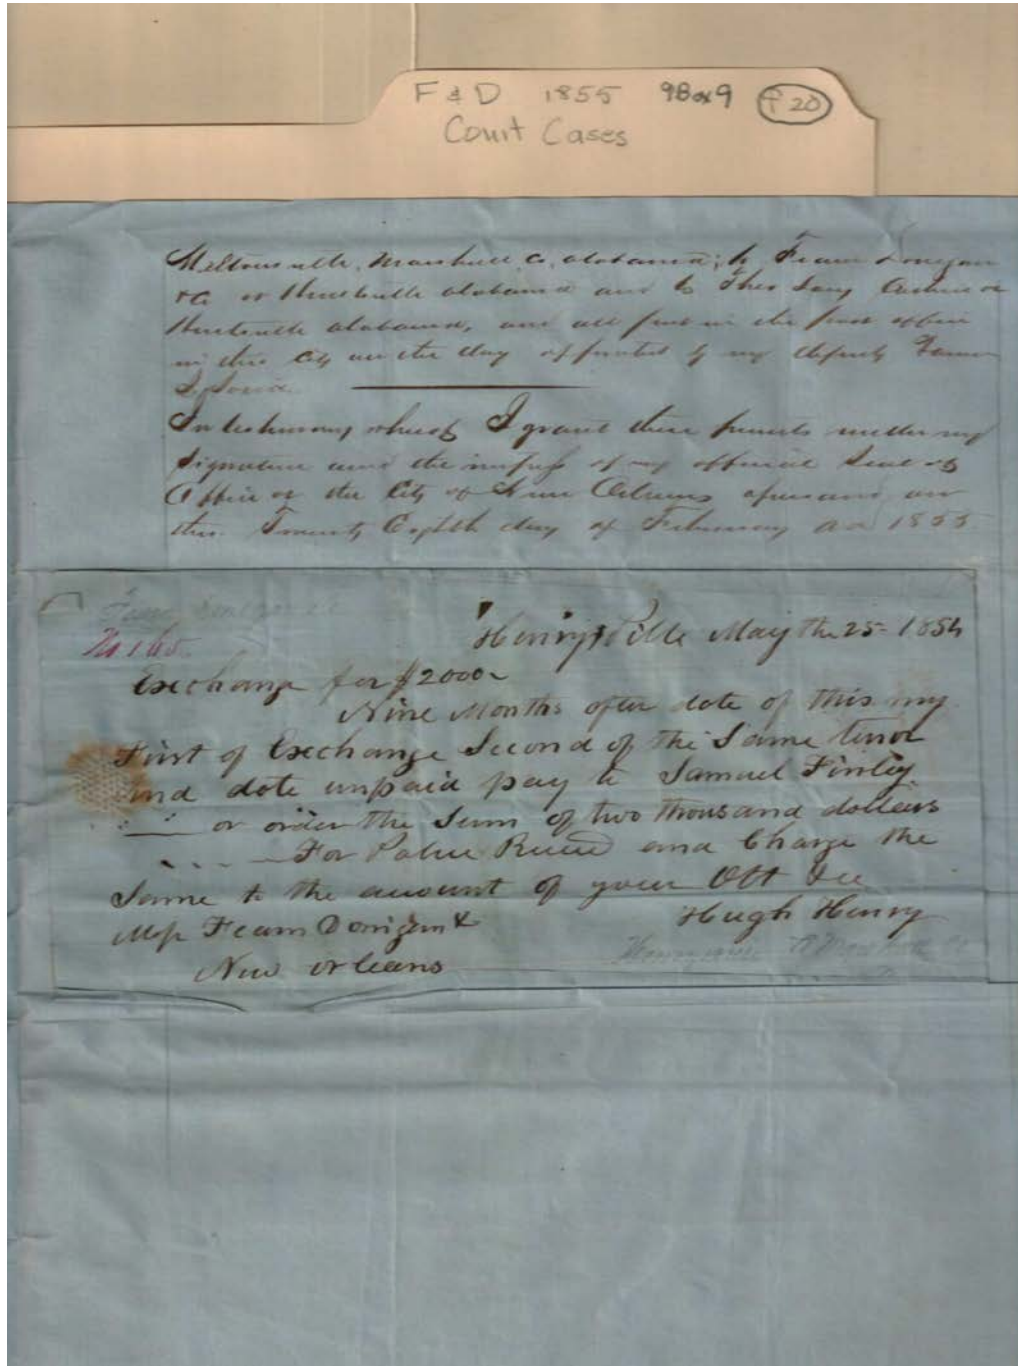 F & D 1855 98 of 9 P 20
Court Cases
Meltonsville, Marshall Co, Alabama; to Fearn Donegan
& Co at Huntsville Alabama and to Thos Cashier
Huntsville Alabama, and all put in the post office
in this City on the day of by my deputy
In testimony whereof I grant these presents under my
Signature and the impress of my official Seal of
Office at the City of New Orleans aforesaid on
this Twenty Eighth day of February AD 1855
No 165
Henryville May the 25 - 1854
Exchange for $2000
Nine Months after date of this my
First of Exchange Second of the Same tenor
and date unpaid pay to Samuel Finley
or order the Sum of two thousand dollars
For Value Recd and Charge the
Same to the account of your Obt
Hugh Henry
Fearn Donigan &
New Orleans